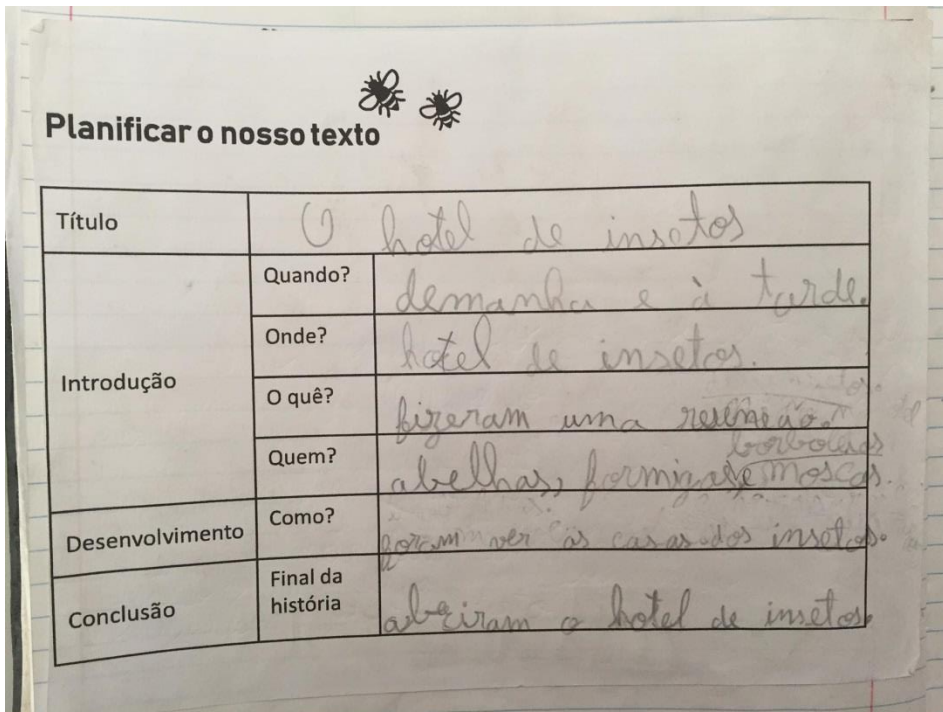 Planificar o nosso texto
Título
O hotel de insetos
Introdução
Quando?
demanha e à tarde.
Onde?
hotel de insetos.
O quê?
fizeram uma
Quem?
borboletas
abelhas, formigas e moscas.
Desenvolvimento
Como?
foram ver as casas dos insetos.
Conclusão
Final da
história
abriram o hotel de insetos.